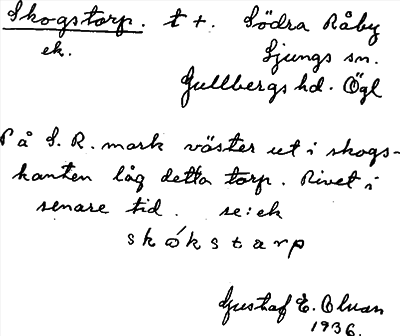 Skogstorp. t +. Södra Råby
ek. Ljungs sn.
Gullbergs hd. Ögl
På S. R. mark väster ut i skogs-
kanten låg detta torp. Rivet i
senare tid. se: ek
skókstarp
Gustaf E. Olvan
1936.